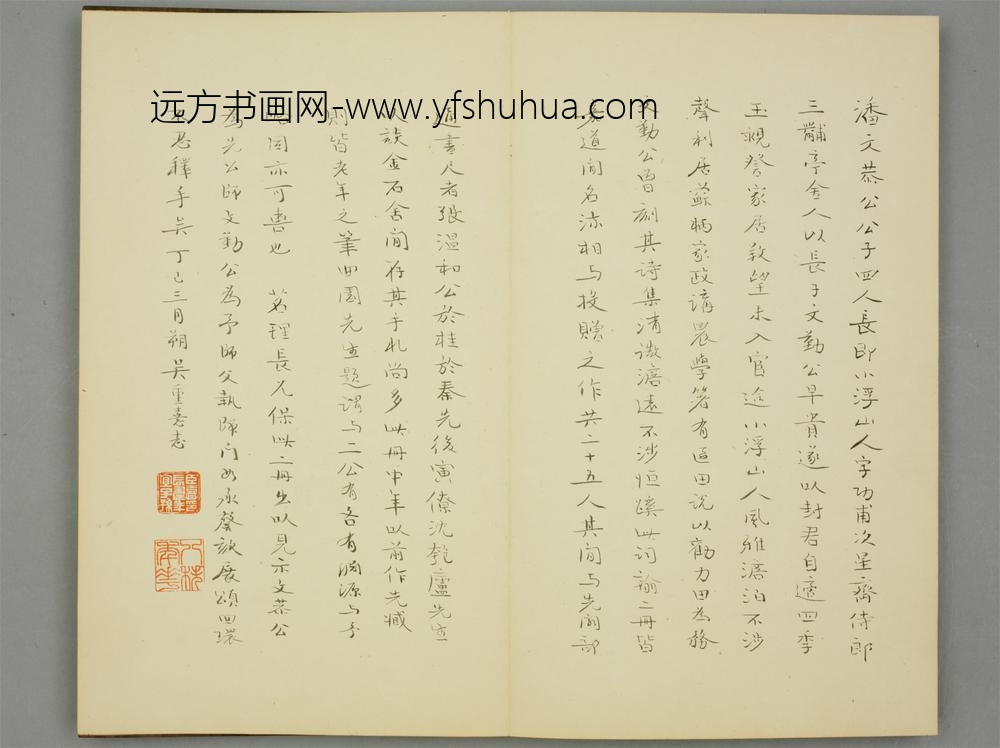 远方书画网-www.yfshuhua.com
潘文恭公公子四人長即小浮山人字功甫次星齋侍郎
三黼亭舍人以長子文勤公早貴遂以封君自適四季
玉親詧家居教望未入官途小浮山人風雅澹泊不涉
聲利居蘇柄家政講農學箸有區田説以勸力田為務
文勤公曾刻其诗集清微澹遠不涉恒蹊此词翰二冊皆
道聞名流相与投贈之作共二十五人其間与先閣部
通書尺者張温和公於桂於秦先後寅僚沈匏廬先生
以談金石舍間存其手札尚多此冊中年以前作先臧
則皆老年之筆四園先生題謂与二公有各有淵源与予
同亦可喜也 茗理長兄保此二冊出以見示文恭公
為先公師文勤公為予師父執師门如承謦欬展頌四環
忍釋手矣丁巳三月朔吳重憙志